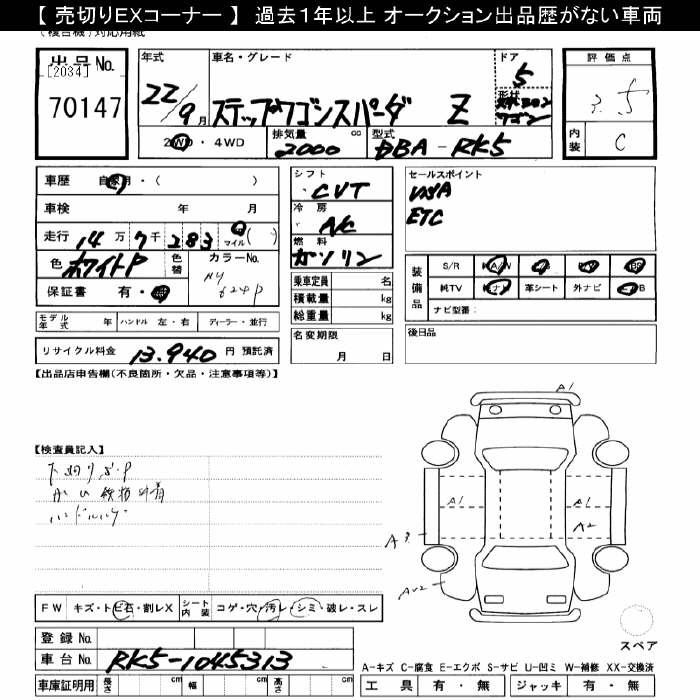 【 売切りEXコーナー 】 過去１年以上 オークション出品歴がない車両
(複合機)対応用紙
出品No.
[2034]
70147
年式
22/9月
車名・グレード
ステップワゴンスパーダ Z
ドア
5
形状
ワゴン
2WD・4WD
排気量
2000 cc
型式
DBA-RK5
評価点
3.5
内装
C
車歴 自家用・( )
車検 年 月
走行 14万7千283 マイル( )
色 ホワイトP
色替
カラーNo.
NH
624P
保証書 有・無
シフト
CVT
冷房
A/C
燃料
ガソリン
乗車定員 名
積載量 kg
総重量 kg
名変期限
月 日
セールスポイント
ETC
装備品
S/R
純TV
革シート
外ナビ
ナビ型番:
後日品
モデル年式 年
ハンドル 左・右
ディーラー・並行
リサイクル料金 13.940 円 預託済
【出品店申告欄(不良箇所・欠品・注意事項等)】
【検査員記入】
A1
A1
A1
A2
A3
FW キズ・トビ石・割レX
シート内装 コゲ・穴・汚レ・シミ・破レ・スレ
登録No.
車台No. RK5-1045313
車庫証明用 長さ cm 幅 cm 高さ cm
スペア
A-キズ C-腐食 E-エクボ S-サビ U-凹ミ W-補修 XX-交換済
工具 有・無 ジャッキ 有・無